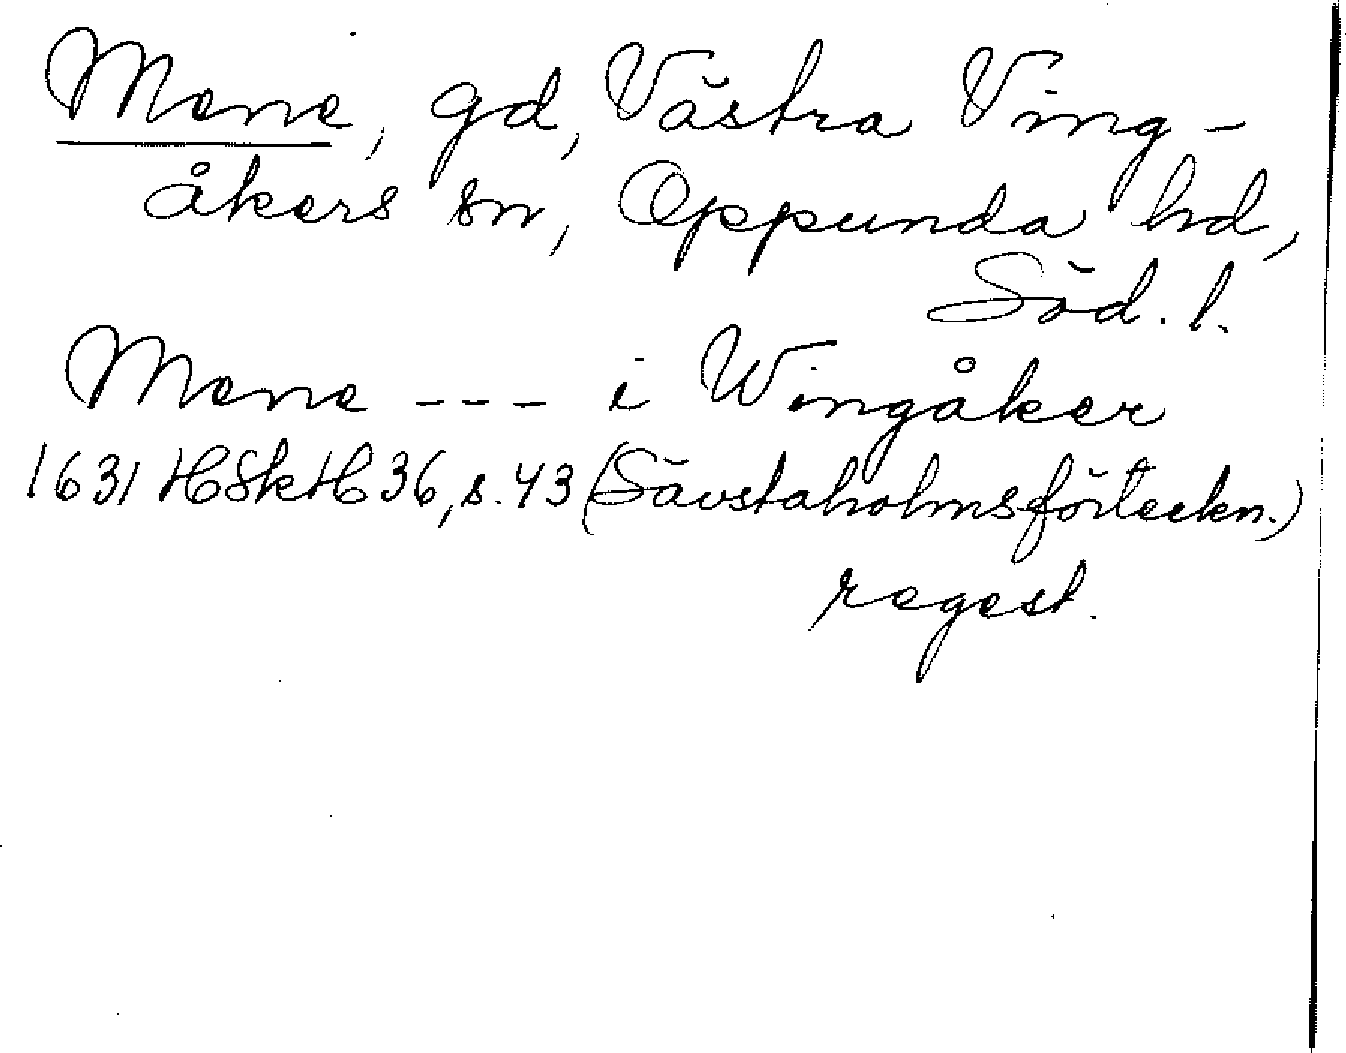 Mene, gd, Västra Ving-
åkers sn, Oppunda hd,
Söd. l.
Mene --- i Wingåker
1631 HSkH 36, s. 43 (Sävstaholmsförteckn.)
regest.